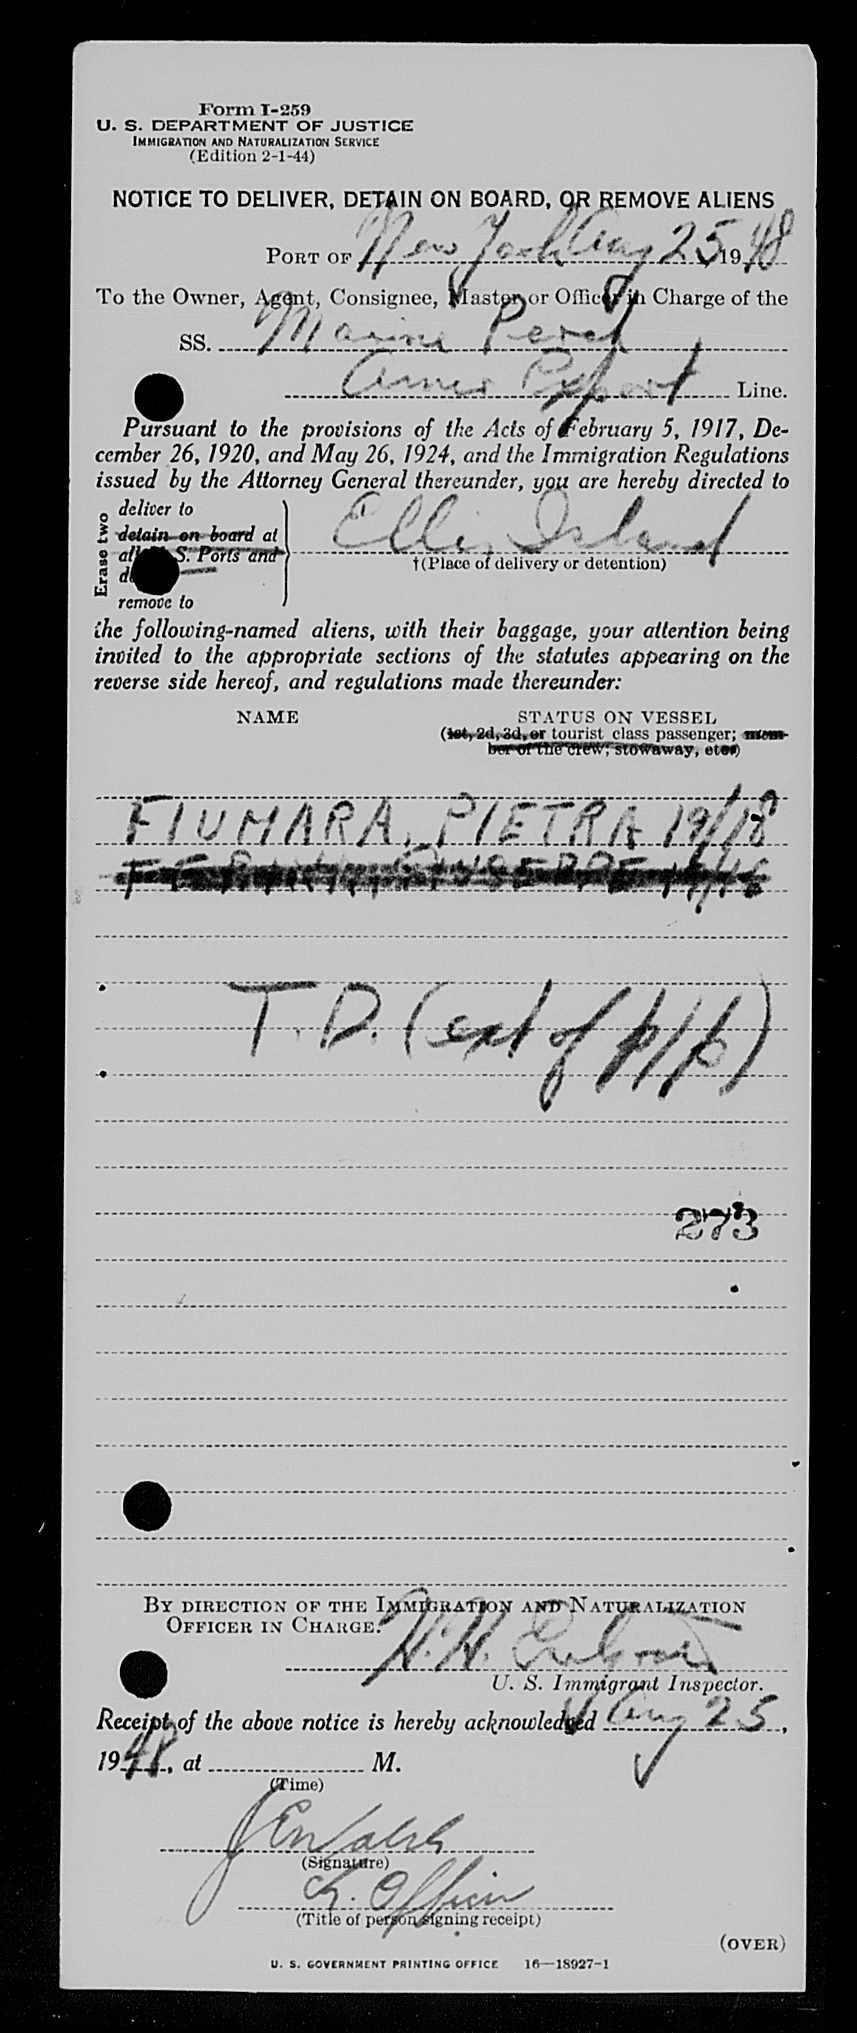 Form I-259
U. S. DEPARTMENT OF JUSTICE
IMMIGRATION AND NATURALIZATION SERVICE
(Edition 2-1-44)
NOTICE TO DELIVER, DETAIN ON BOARD, OR REMOVE ALIENS
PORT OF New York Aug 25, 1948
To the Owner, Agent, Consignee, Master or Officer in Charge of the
SS. Marine Perch
Amer Export Line.
Pursuant to the provisions of the Acts of February 5, 1917, De-
cember 26, 1920, and May 26, 1924, and the Immigration Regulations
issued by the Attorney General thereunder, you are hereby directed to
Erase two
deliver to
detain on board at
all U. S. Ports and
remove to
Ellis Island
†(Place of delivery or detention)
the following-named aliens, with their baggage, your attention being
invited to the appropriate sections of the statutes appearing on the
reverse side hereof, and regulations made thereunder:
NAME STATUS ON VESSEL
(1st, 2d, 3d, or tourist class passenger; mem-
ber of the crew, stowaway, etc.)
FIUMARA, PIETRA 19/18
T. D. (ext of p/p)
273
BY DIRECTION OF THE IMMIGRATION AND NATURALIZATION
OFFICER IN CHARGE:
H. H.
U. S. Immigrant Inspector.
Receipt of the above notice is hereby acknowledged Aug 25,
1948, at M.
(Time)
J E Walsh
(Signature)
Officer
(Title of person signing receipt)
(OVER)
U. S. GOVERNMENT PRINTING OFFICE 16—18927-1